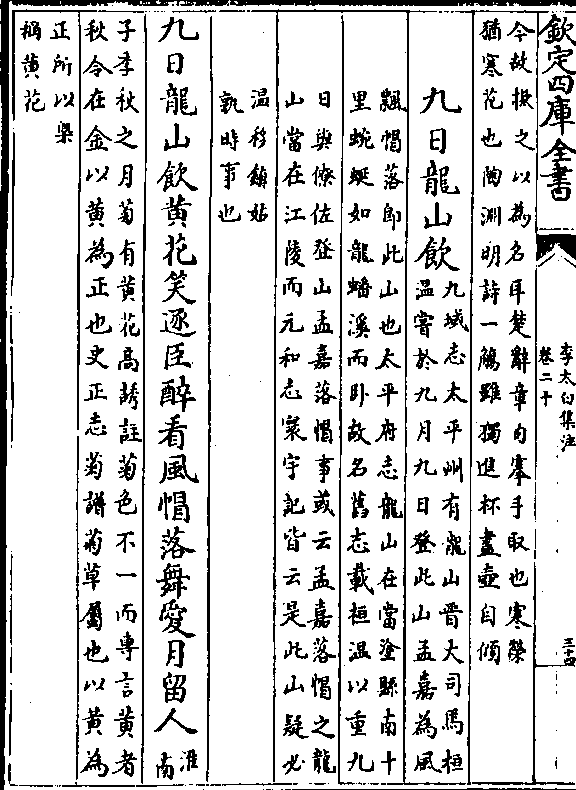 欽定四庫全書
李太白集注
卷二十
三十四
今故掇之以為名耳楚辭章句搴手取也寒榮
猶寒花也陶淵明詩一觴雖獨進杯盡壺自傾
九日龍山飲
九域志太平州有龍山晉大司馬桓
溫嘗於九月九日登此山孟嘉為風
飄帽落即此山也太平府志龍山在當塗縣南十
里蜿蜒如龍蟠溪而卧故名舊志載桓温以重九
日與僚佐登山孟嘉落帽事或云孟嘉落帽之龍
山當在江陵而元和志寰宇記皆云是此山疑必
温移鎮姑
孰時事也
九日龍山飲黄花笑逐臣醉看風帽落舞愛月留人
淮南
子季秋之月菊有黄花高誘註菊色不一而專言黄者
秋令在金以黄為正也史正志菊譜菊草屬也以黄為
正所以槩
稱黄花